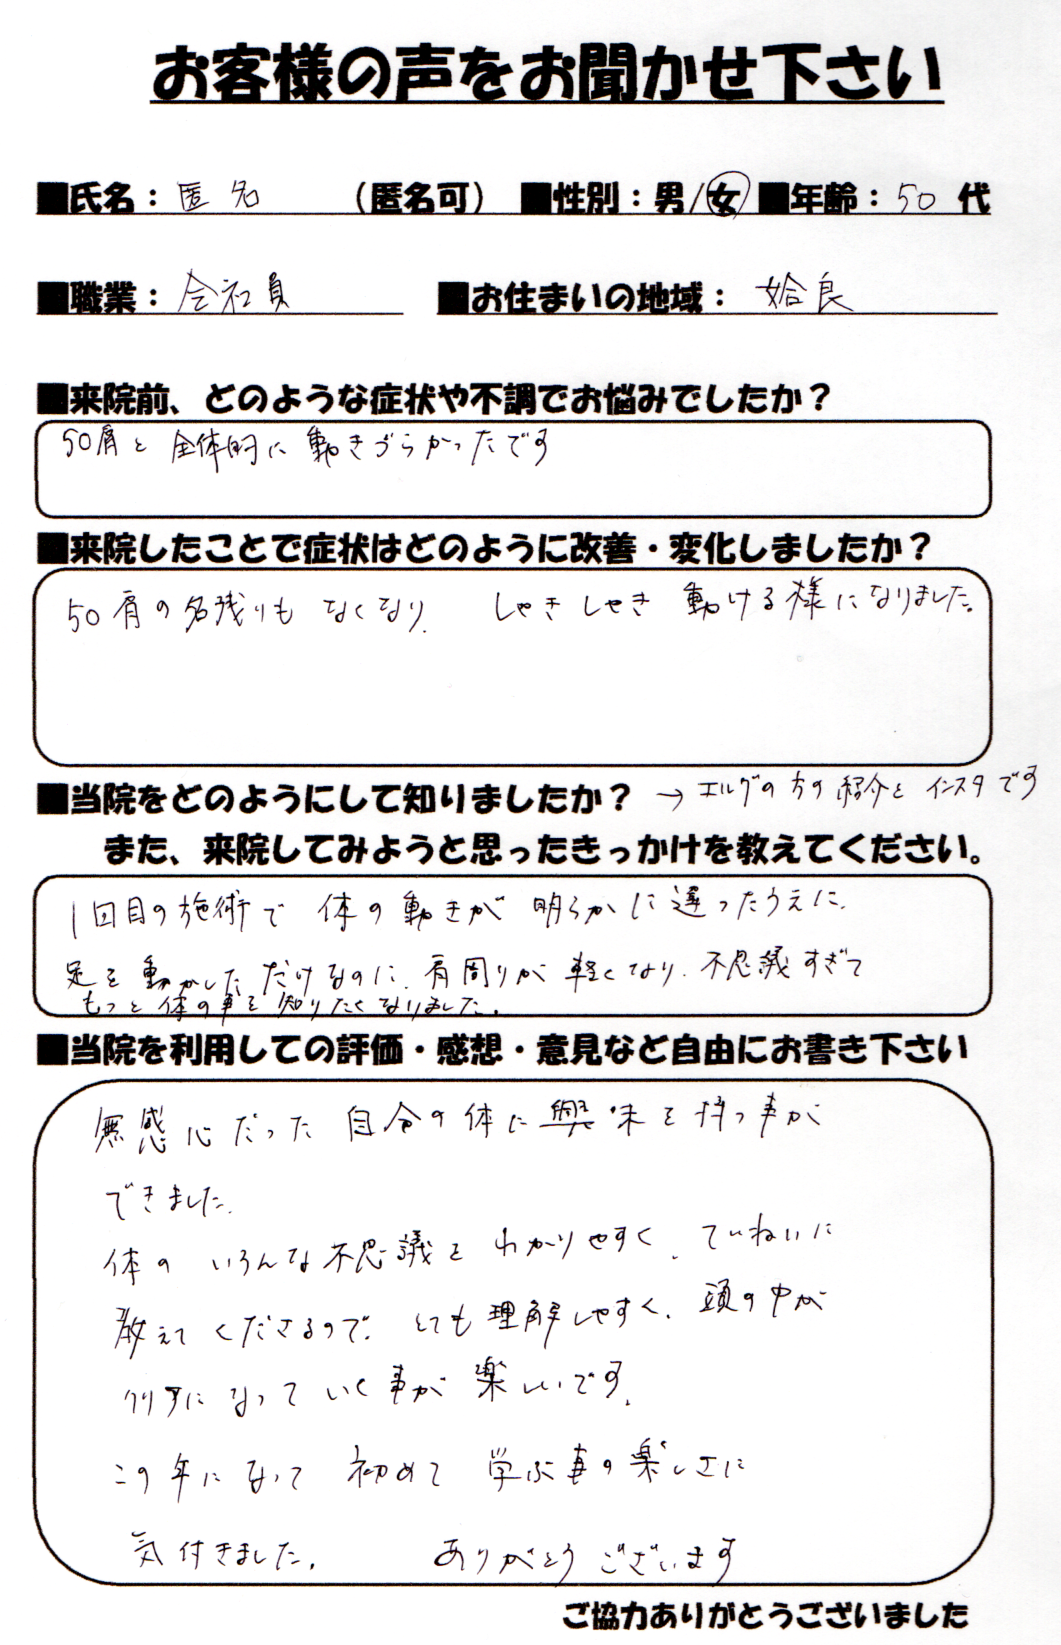 お客様の声をお聞かせ下さい
■氏名：匿名 （匿名可） ■性別：男/女 ■年齢：50代
■職業：会社員 ■お住まいの地域：姶良
■来院前、どのような症状や不調でお悩みでしたか？
50肩と全体的に動きづらかったです
■来院したことで症状はどのように改善・変化しましたか？
50肩の名残りもなくなり、しゃきしゃき動ける様になりました。
■当院をどのようにして知りましたか？ →エルグの方の紹介とインスタです
また、来院してみようと思ったきっかけを教えてください。
1回目の施術で体の動きが明らかに違ったうえに、
足を動かしただけなのに、肩周りが軽くなり、不思議すぎて
もっと体の事を知りたくなりました。
■当院を利用しての評価・感想・意見など自由にお書き下さい
無感心だった自分の体に興味を持つ事が
できました。
体のいろんな不思議をわかりやすく、ていねいに
教えてくださるので、とても理解しやすく、頭の中が
クリアになっていく事が楽しいです。
この年になって初めて学ぶ事の楽しさに
気付きました。 ありがとうございます
ご協力ありがとうございました